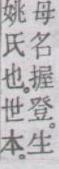 母名握登。生
姚氏也。世本。